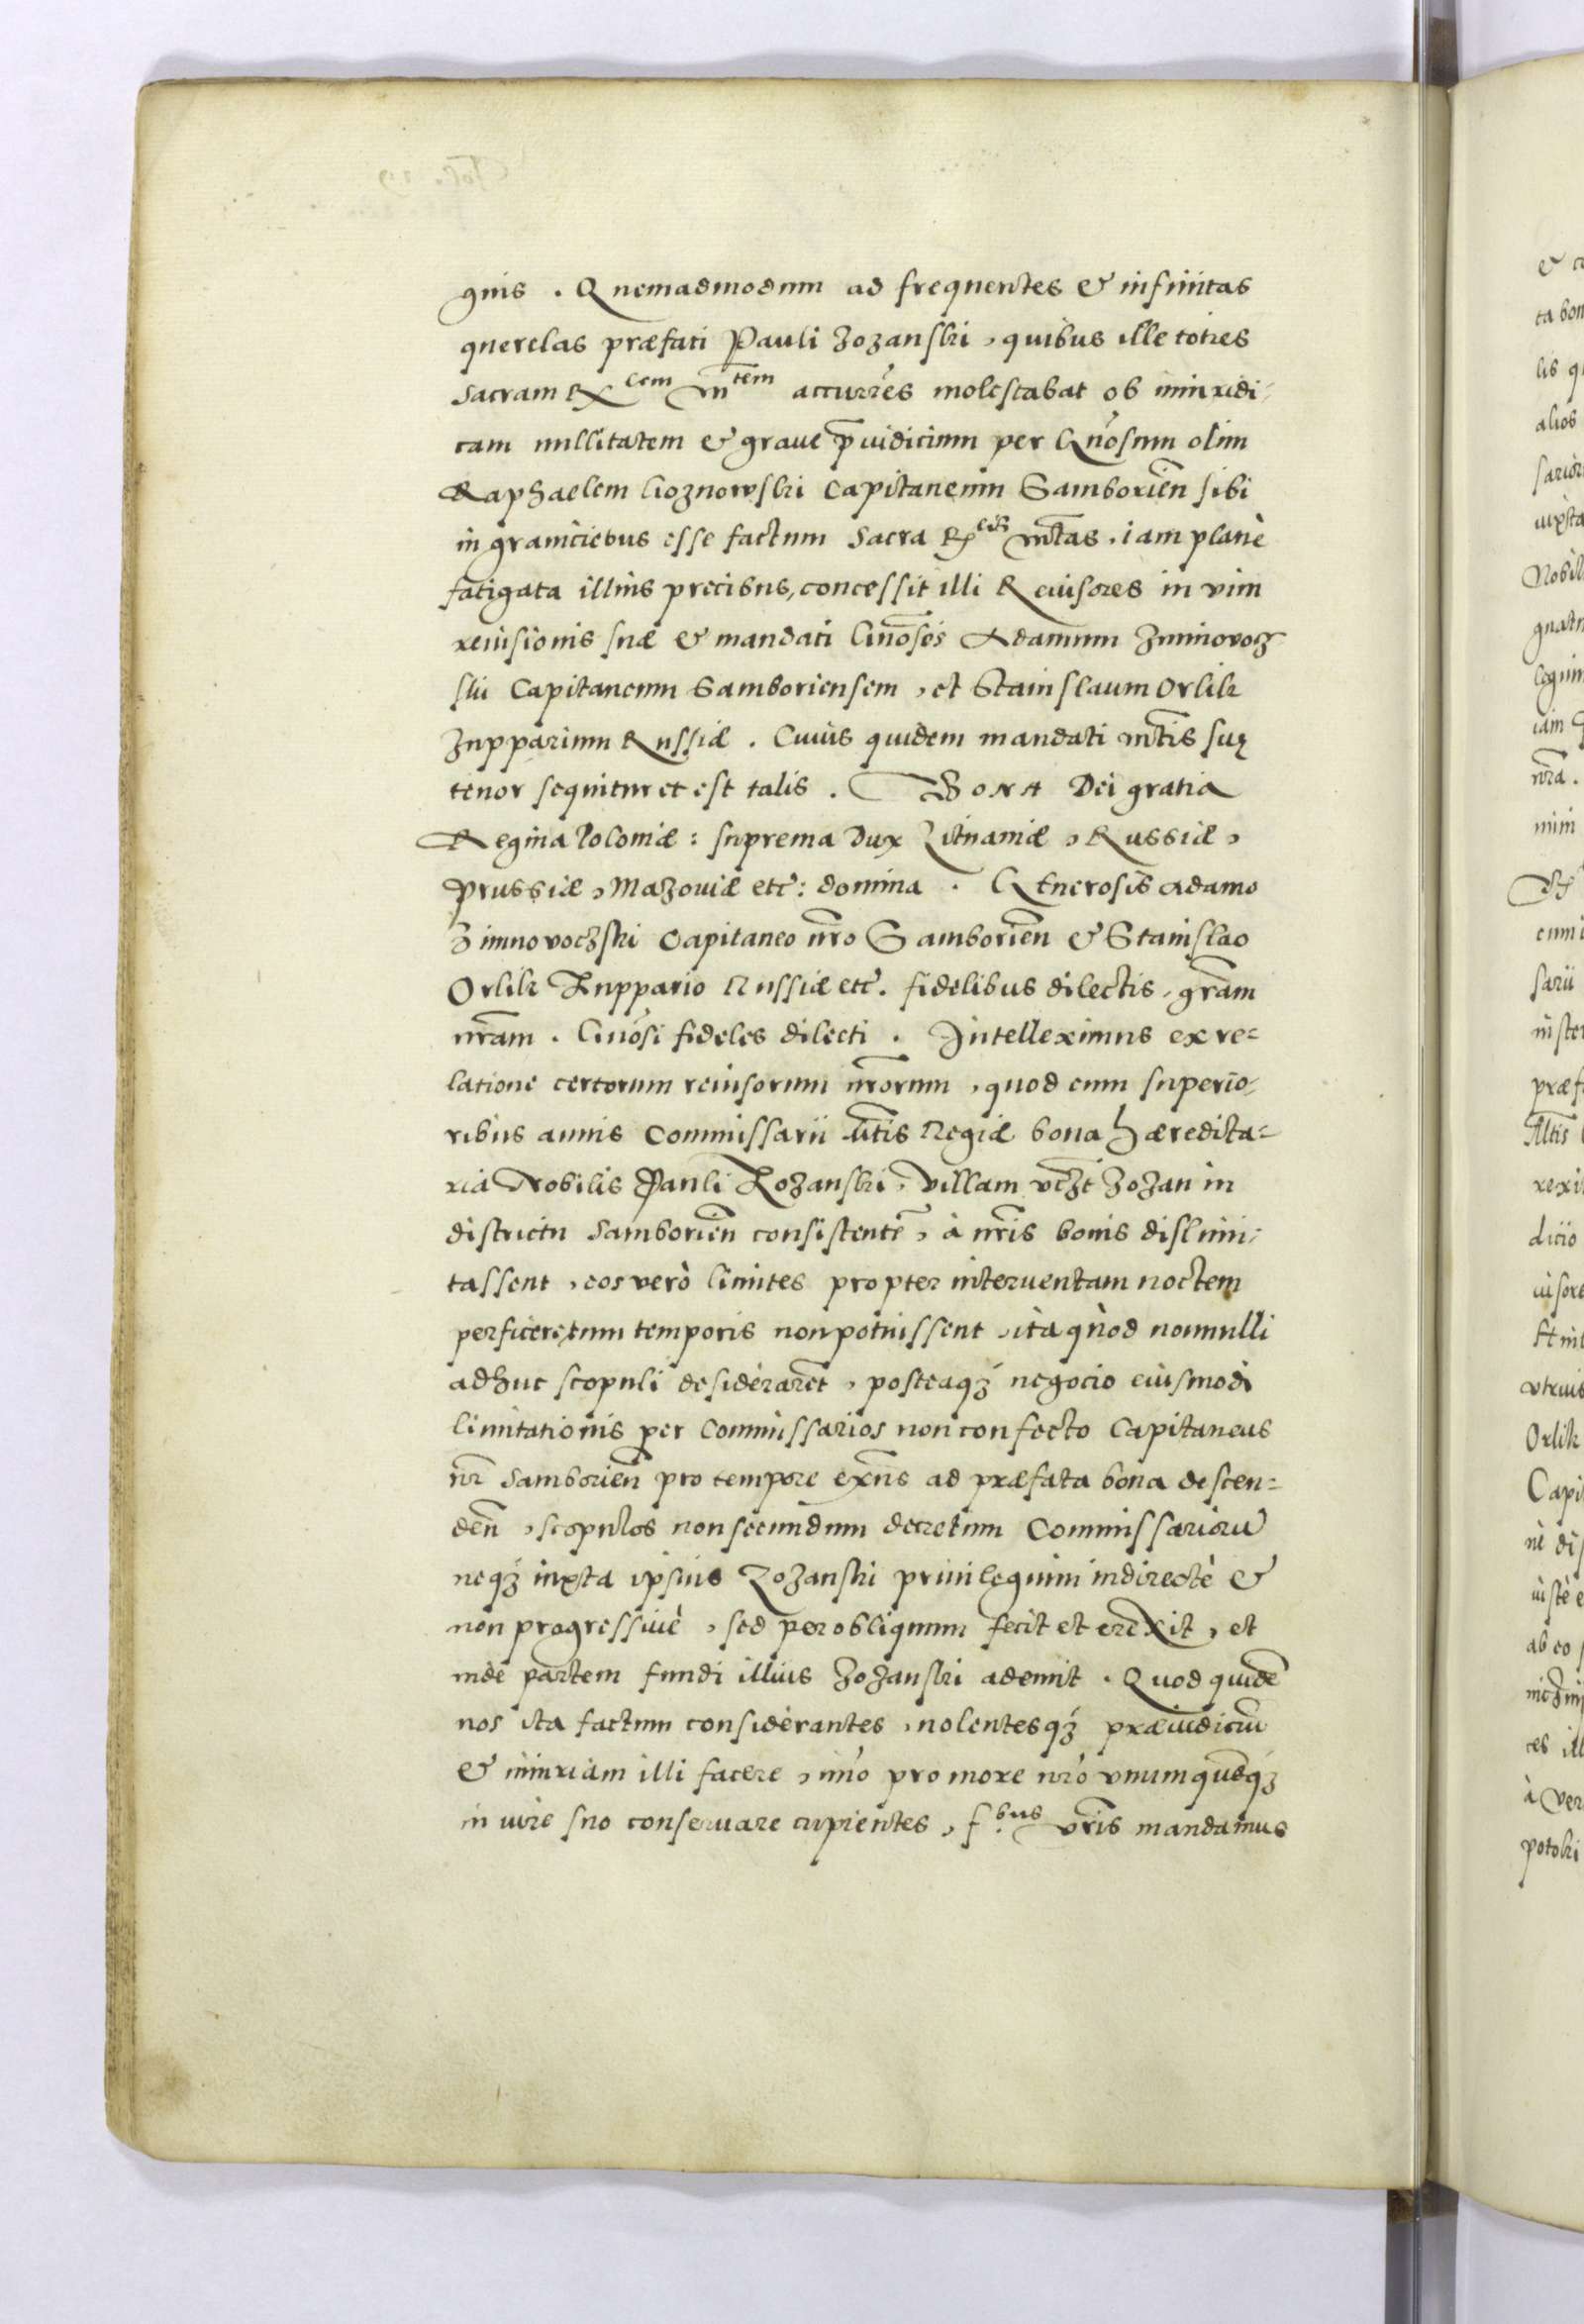 gnis . Quemadmodum ad frequentes & infinitas
querelas præfati Pauli Zozanski, quibus ille toties
sacram R cem m̄tem accurrēs molestabat ob iniuridi-
cam nullitatem & graue p̄iudicium per Gn̄osum olim
Raphaelem Gioznowski Capitaneum Samborien̄ sibi
in graniciebus esse factum Sacra R eius m̄tas, iam planè
fatigata illius precibus, concessit illi Reuisores in vim
reuisionis suæ & mandati Gn̄osos Adamum Zimnovocz-
ski Capitaneum Samboriensem, et Stanislaum Orlik
Zupparium Russiæ. Cuius quidem mandati m̄tis suę
tenor sequitur et est talis. Bona Dei gratia
Regina Poloniæ: suprema Dux Litnaniæ, Russiæ,
Prussiæ, Mazouiæ etc: domina. GEnerosis Adamo
Zimnovoczski Capitaneo nr̄o Samborien̄ & Stanislao
Orlik Zuppario Russiæ etc. fidelibus dilectis, gr̄am
nr̄am. Gn̄osi fideles dilecti. Intelleximus ex re=
latione certorum reuisorum nr̄orum, quod cum superio-
ribus annis Commissarii m̄tis Regiæ bona hæredita=
ria Nobilis Pauli Zozanski, villam vczt Zozan in
districtu Samborien̄ consistentē, à nr̄is bonis dislimi-
tassent, eos verò limites propter interuentam noctem
perficere tum temporis non potuissent, ità quòd nonnulli
adhuc scopuli desiderarēt, posteaqȝ negocio eiusmodi
limitationis per Commissarios non confecto Capitaneus
nr̄ Samborien̄ pro tempore ex̄ns ad præfata bona descen=
den̄, scopulos non secundum decretum Commissariorū
neqȝ iuxta ipsius Zozanski priuilegium indirectè &
non progressiuè, sed per obliquum fecit et erexit, et
inde partem fundi illius Zozanski ademit. Quod quidē
nos ita factum considerantes, nolentesqȝ præiudiciū
& iniuriam illi facere, imò pro more nr̄o vnumquēqȝ
in iure suo conseruare cupientes, f.bus vr̄is mandamus